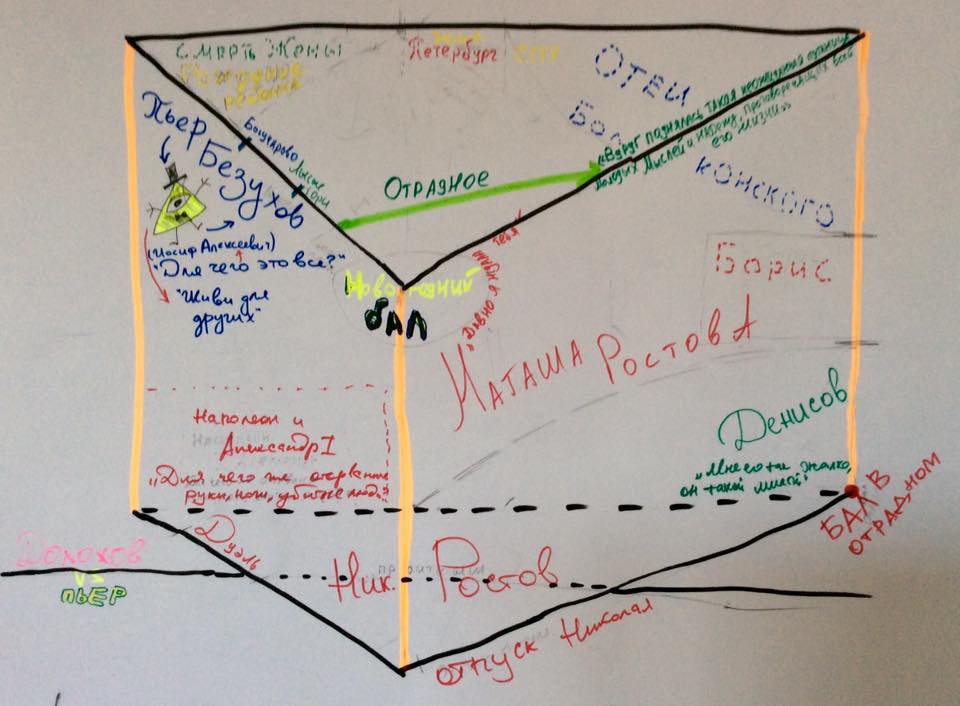 Смерть Жены
Рождение
ребёнка
Петербург
CITY
Отец
Бол
конского
Пьер
Безухов
Богучарово
Лысые
Горы
Отрадное
"Вдруг поднялась такая неожиданная путаница
молодых мыслей и надежд, противоречащих всей
его жизни"
(Иосиф Алексеевич)
"Для чего это все?"
"Живи для
других"
Новогодний
бал
"Давно я ждала
тебя"
Наташа Ростова
Борис
Денисов
"Мне его так жалко,
он такой милый"
Бал в
Отрадном
Наполеон и
Александр I
"Для чего же оторванные
руки, ноги, убитые люди?"
Дуэль
Долохов
vs
Пьер
Ник. Ростов
отпуск Николая